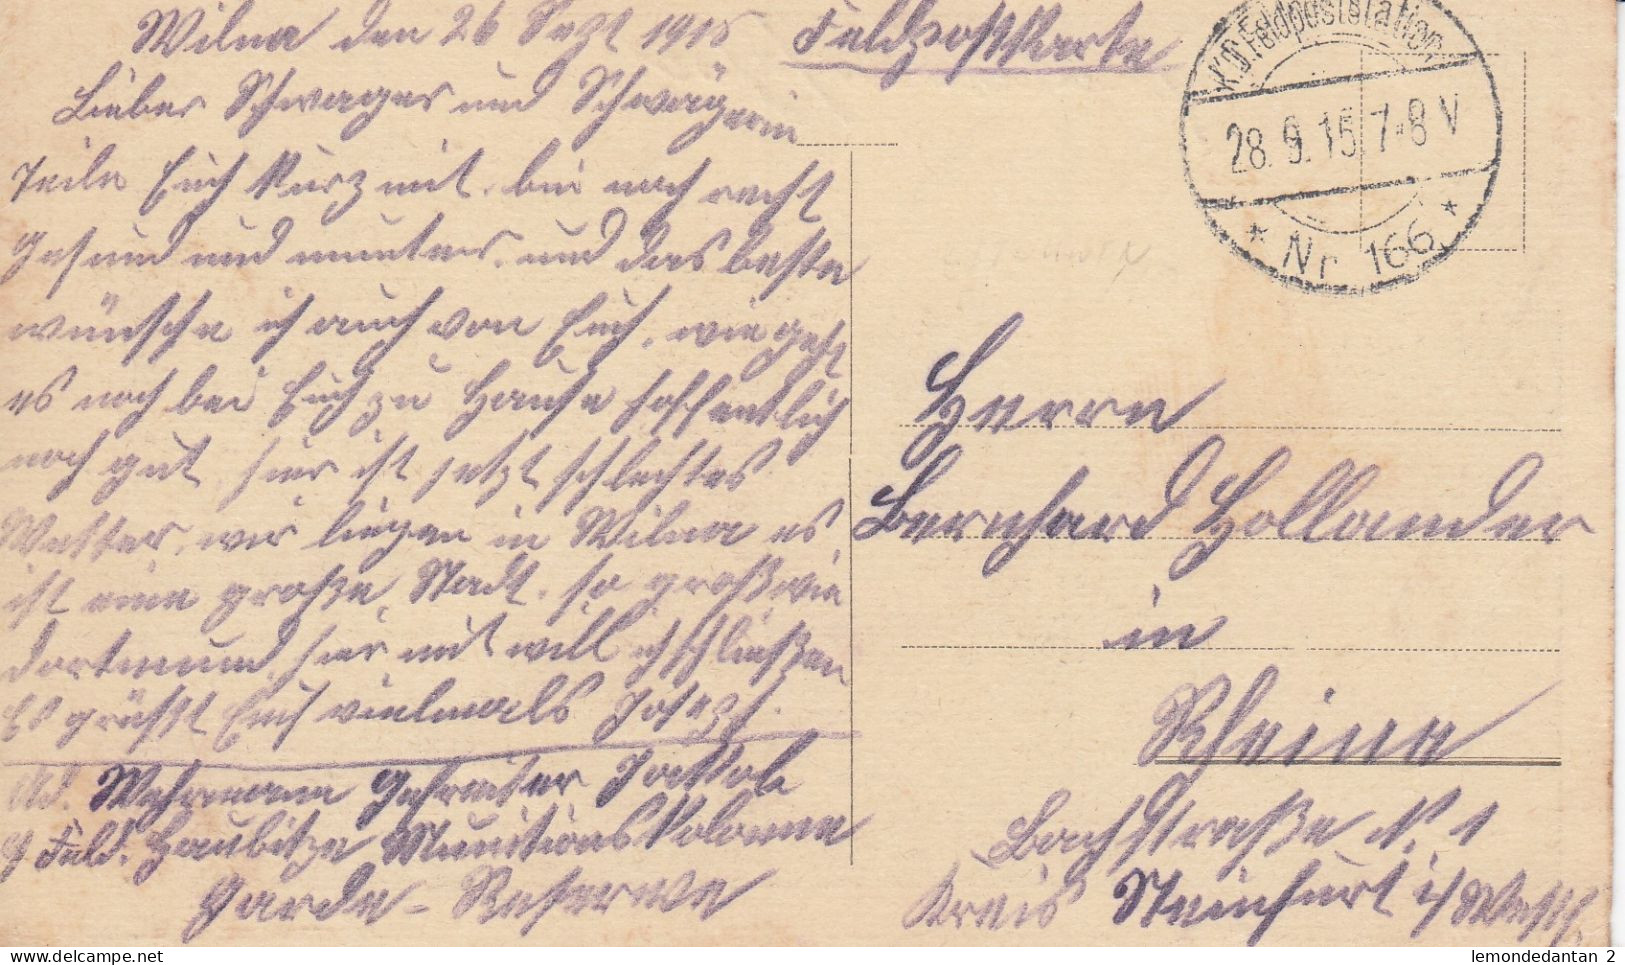 Wilna den 26 Sept 1915 Feldpostkarte
Lieber Schwager und Schwägerin
Teile Euch kurz mit, bin noch recht
Gesund und munter, und das beste
wünsche ich auch von Euch, wie geht
es noch bei Euch zu Hause hoffentlich
noch gut, hier ist jetzt schlechtes
Wetter, wir liegen in Wilna es
ist eine große Stadt, so groß wie
Dortmund, hier mit will ich schließen
Es grüßt Euch vielmals Joseph.
Ad. Wehrmann Gefreiter Joseph
9 Feld. Haubitze Munitions Kolonne
Garde-Reserwe
K.D. Feldpoststation
28.9.15. 7-8 V
* Nr. 166. *
Herrn
Bernhard Hollander
in
Rheine
Bachstraße N. 1
Kreis Steinfurt i/Westf.
lemondedantan 2